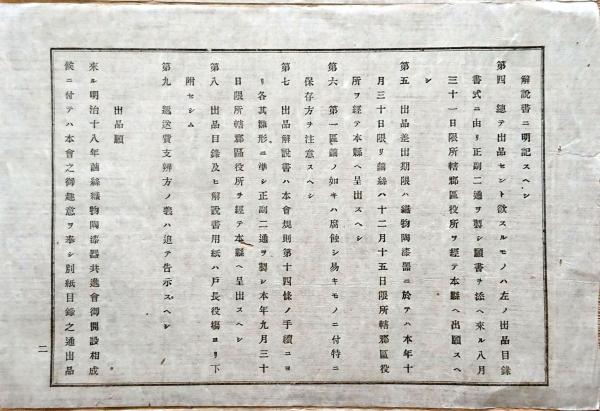 解説書ニ明記スヘシ
第四　總テ出品セント欲スルモノハ左ノ出品目錄
書式ニ由リ正副二通ヲ製シ願書ヲ添ヘ來ル八月
三十一日限所轄郡區役所ヲ經テ本縣ヘ出願スヘ
シ
第五　出品差出期限ハ織物陶漆器ニ於テハ本年十
月三十日限リ繭絲ハ十二月十五日限所轄郡區役
所ヲ經テ本縣ヘ呈出スヘシ
第六　第一區繭ノ如キハ腐蝕シ易キモノニ付特ニ
保存方ヲ注意スヘシ
第七　出品解說書ハ本會規則第十四條ノ手續ニヨ
リ各其雛形ニ準シ正副二通ヲ製シ本年九月三十
日限所轄郡區役所ヲ經テ本縣ヘ呈出スヘシ
第八　出品目錄及ヒ解說書用紙ハ戶長役塲ヨリ下
附セシム
第九　遞送費支辨方ノ義ハ追テ告示スヘシ
出品願
來ル明治十八年繭絲織物陶漆器共進會御開設相成
候ニ付テハ本會之御趣意ヲ奉シ別紙目錄之通出品
二